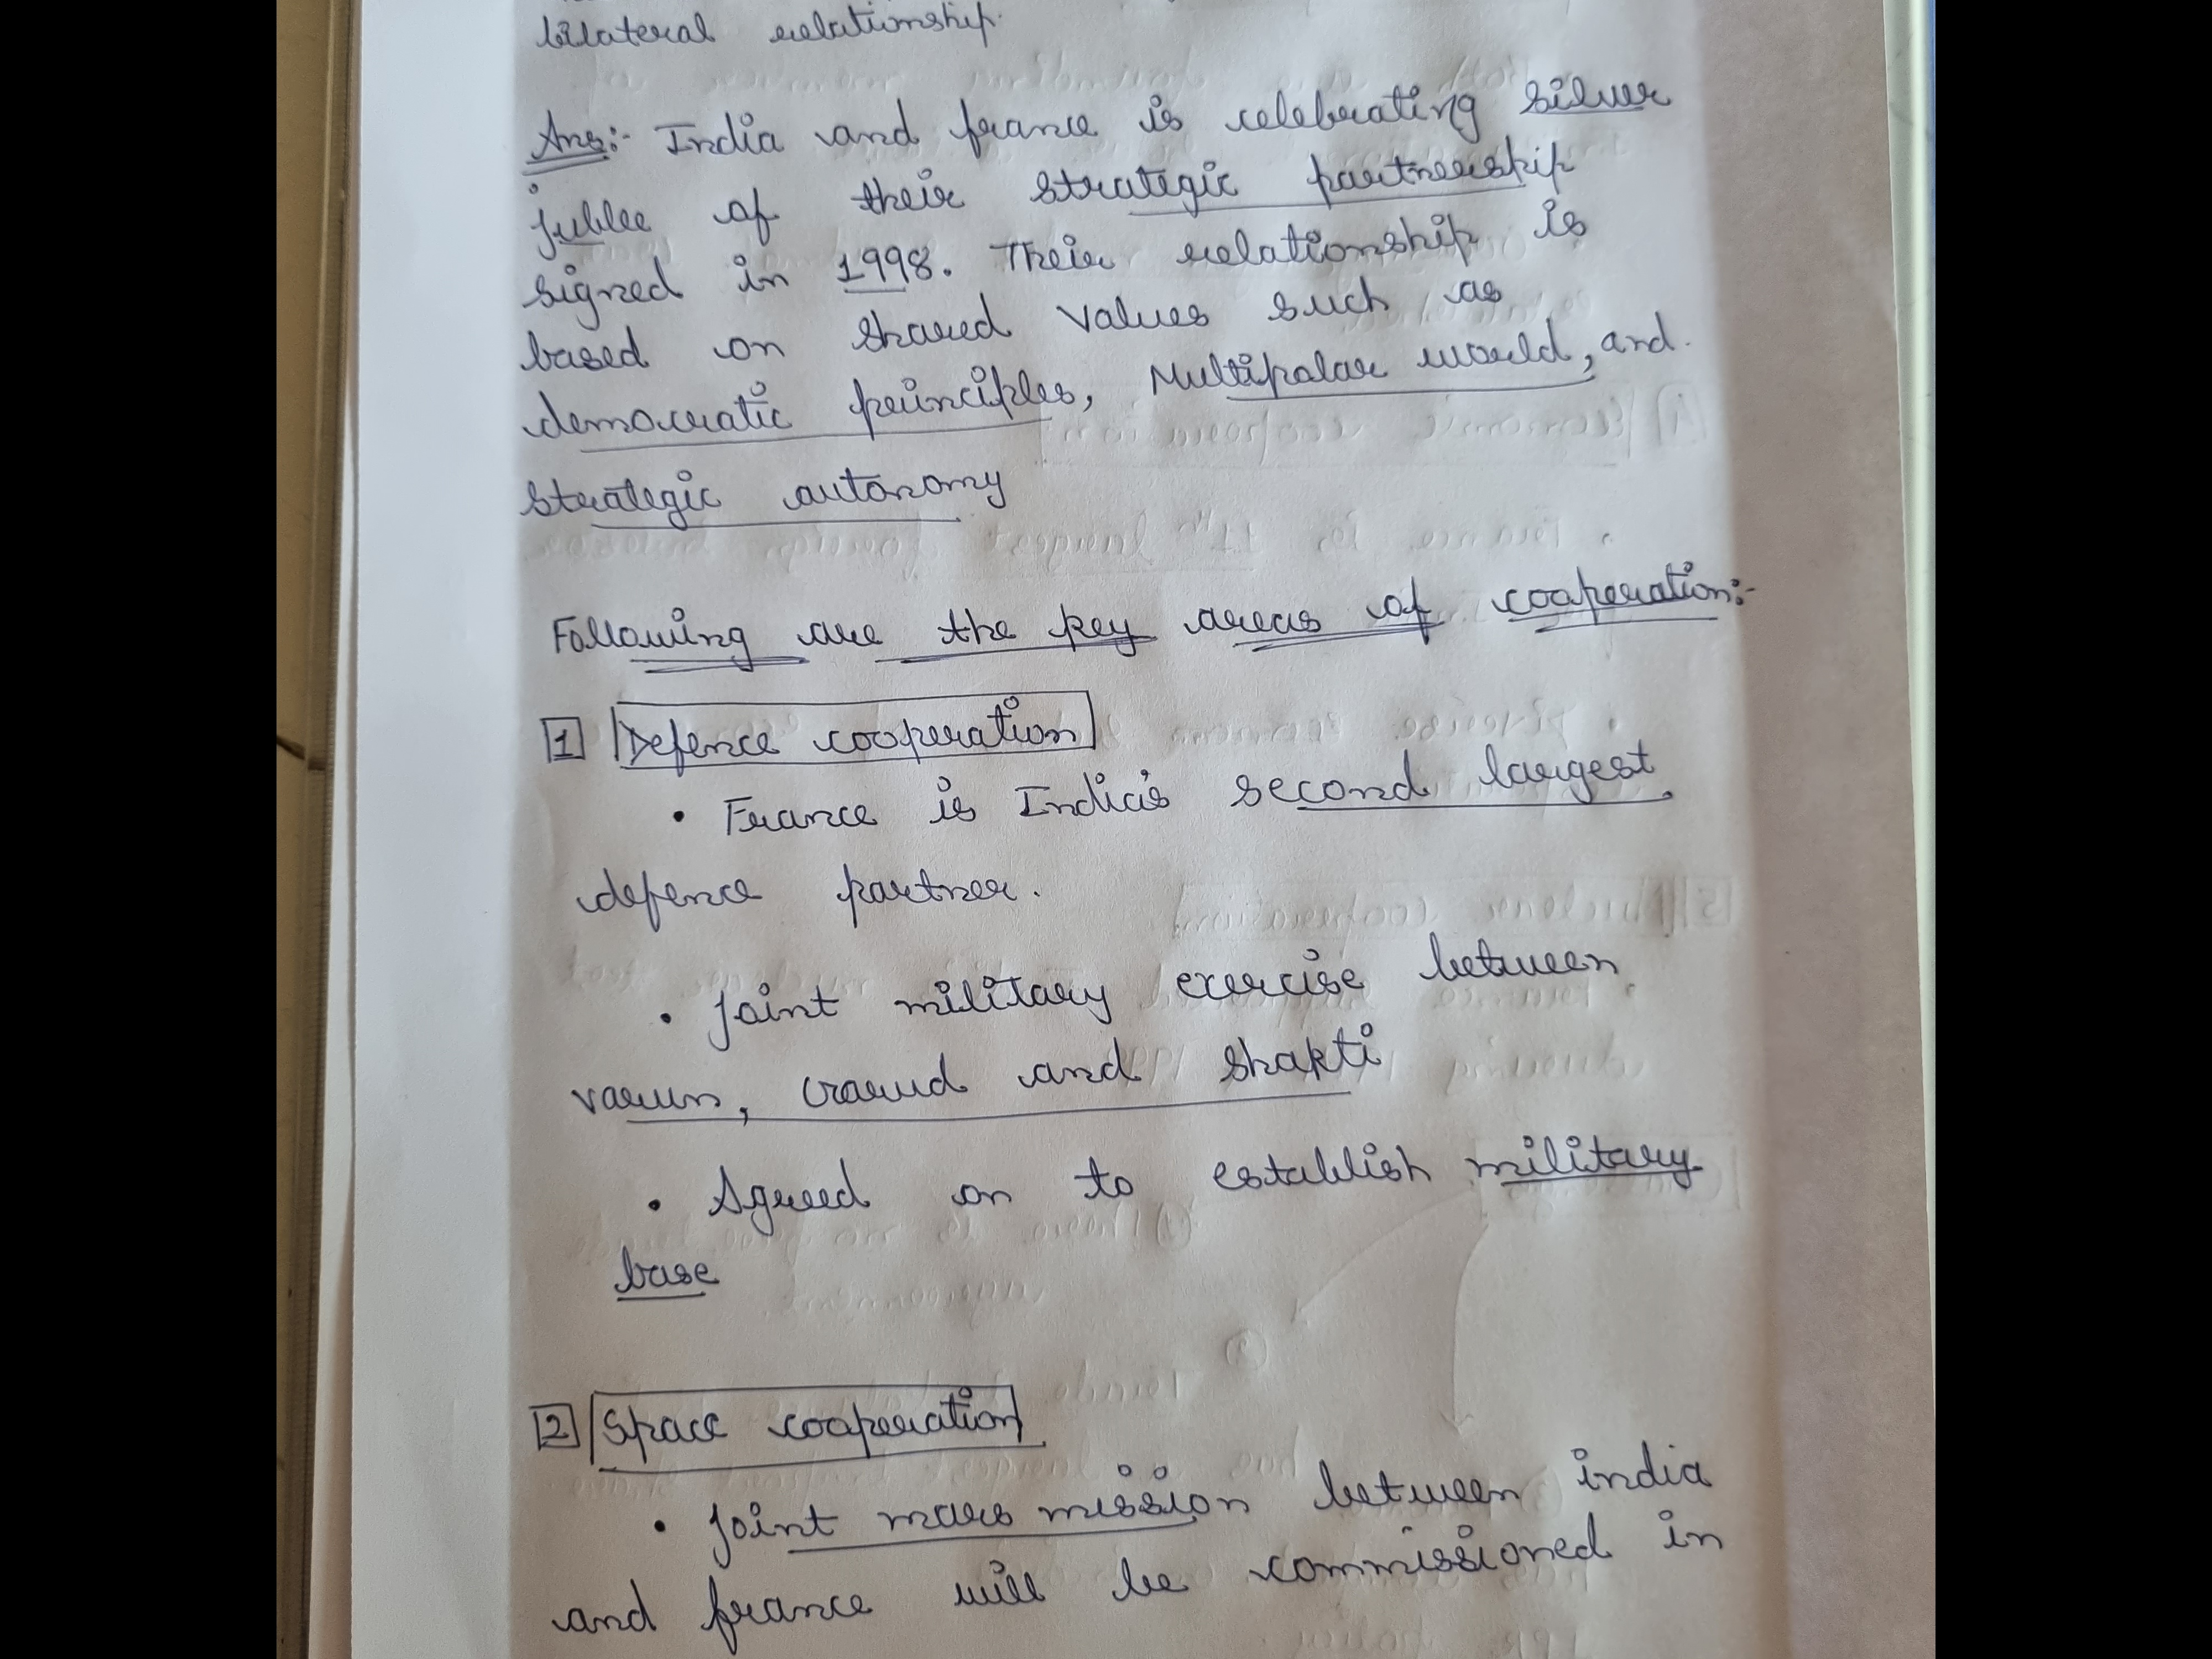 bilateral relationship.
Ans:- India and france is celebrating silver
jublee of their strategic partnership
signed in 1998. Their relationship is
based on shared values such as
democratic principles, Multipolar world, and
strategic autonomy
Following are the key areas of cooperation:-
1 Defence cooperation
• France is India's second largest
defence partner.
• Joint military exercise between
varun, Garud and shakti
• Agreed on to establish military
base
2 Space cooperation
• Joint mars mission between india
and france will be commissioned in